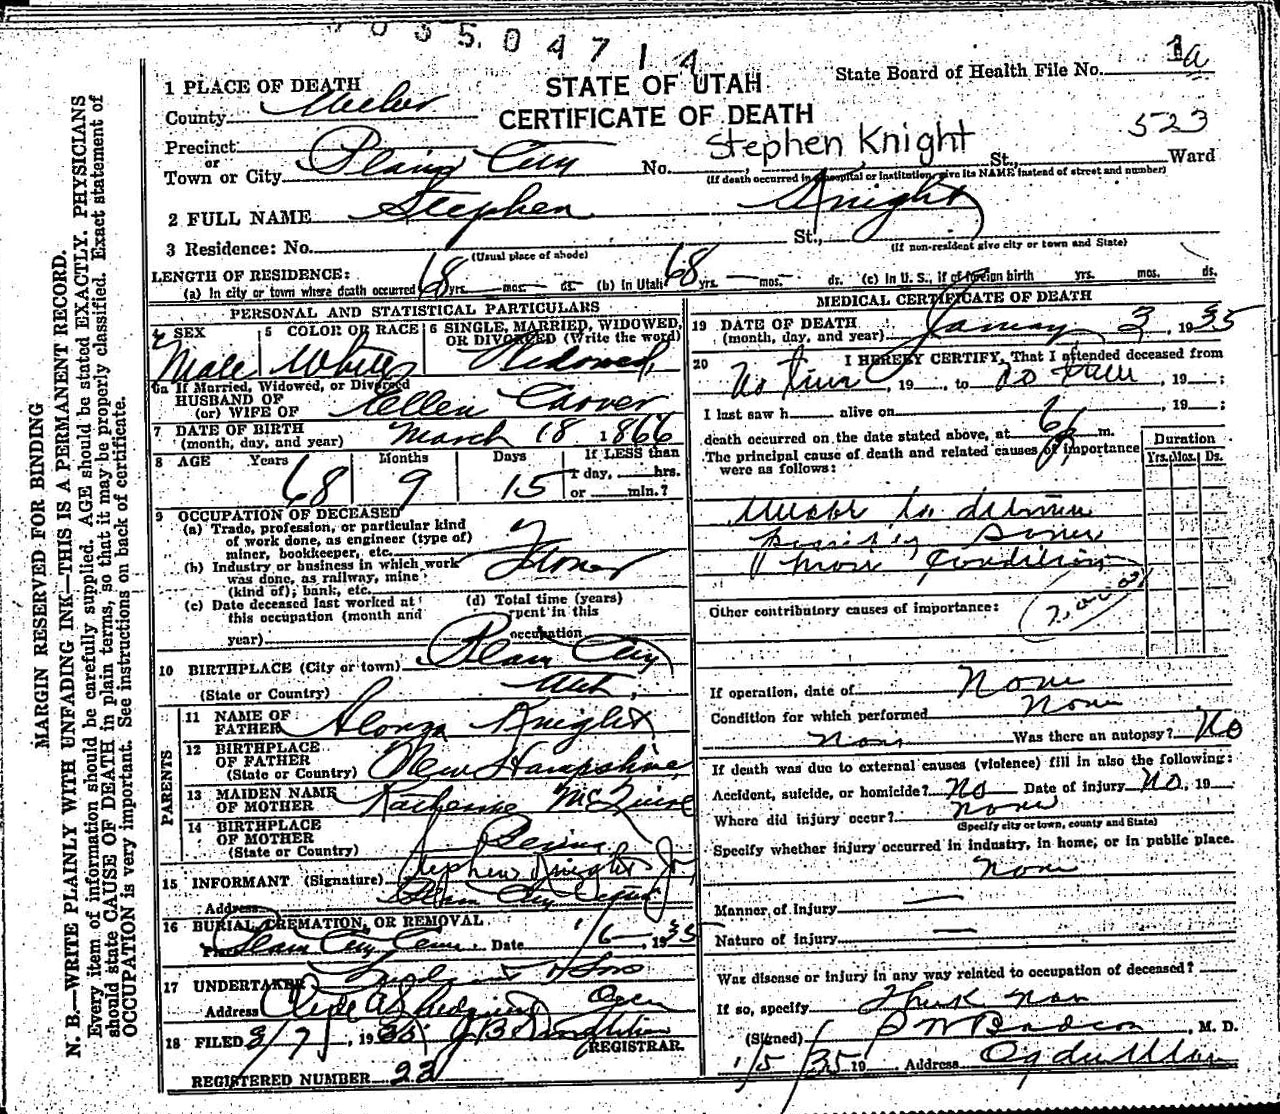 0 3 5 0 4 7 1 4
1a
State Board of Health File No.
STATE OF UTAH
CERTIFICATE OF DEATH
523
1 PLACE OF DEATH
County Weber
Precinct
or
Town or City Plain City No. Stephen Knight St., Ward
(If death occurred in hospital or institution, give its NAME instead of street and number)
2 FULL NAME Stephen Knight
3 Residence: No. St.,
(Usual place of abode) (If non-resident give city or town and State)
LENGTH OF RESIDENCE:
(a) In city or town where death occurred 68 yrs. — mos. — ds. (b) In Utah 68 yrs. — mos. — ds. (c) In U. S., if of foreign birth yrs. mos. ds.
MARGIN RESERVED FOR BINDING
N. B.—WRITE PLAINLY WITH UNFADING INK—THIS IS A PERMANENT RECORD.
Every item of information should be carefully supplied. AGE should be stated EXACTLY. PHYSICIANS
should state CAUSE OF DEATH in plain terms, so that it may be properly classified. Exact statement of
OCCUPATION is very important. See instructions on back of certificate.
PERSONAL AND STATISTICAL PARTICULARS
4 SEX Male
5 COLOR OR RACE White
6 SINGLE, MARRIED, WIDOWED,
OR DIVORCED (Write the word)
Widowed
6a If Married, Widowed, or Divorced
HUSBAND OF
(or) WIFE OF Ellen
7 DATE OF BIRTH
(month, day, and year) March 18 1866
8 AGE Years 68 Months 9 Days 15
If LESS than
1 day, hrs.
or min.?
9 OCCUPATION OF DECEASED
(a) Trade, profession, or particular kind
of work done, as engineer (type of)
miner, bookkeeper, etc.
(b) Industry or business in which work
was done, as railway, mine
(kind of); bank, etc.
(c) Date deceased last worked at
this occupation (month and
year)
(d) Total time (years)
spent in this
occupation
10 BIRTHPLACE (City or town) Plain City
(State or Country) Utah
PARENTS
11 NAME OF
FATHER Alonzo Knight
12 BIRTHPLACE
OF FATHER
(State or Country) New Hampshire
13 MAIDEN NAME
OF MOTHER Katherine McGuire
14 BIRTHPLACE
OF MOTHER
(State or Country)
15 INFORMANT (Signature) Stephen Knight Jr
Address Plain City
16 BURIAL, CREMATION, OR REMOVAL
Place Plain City Cem. Date 1/6 1935
17 UNDERTAKER & Sons
Address Ogden
18 FILED , 1935
REGISTRAR.
REGISTERED NUMBER 22
MEDICAL CERTIFICATE OF DEATH
19 DATE OF DEATH
(month, day, and year) January 3, 1935
20 I HEREBY CERTIFY, That I attended deceased from
No time, 19 , to no time, 19 ;
I last saw h alive on , 19 ;
death occurred on the date stated above, at 6 P m.
The principal cause of death and related causes of importance
were as follows:
Duration
Yrs. Mos. Ds.
Unable to determine
possibly some
Condition
Other contributory causes of importance:
If operation, date of None
Condition for which performed None
None Was there an autopsy? No
If death was due to external causes (violence) fill in also the following:
Accident, suicide, or homicide? No Date of injury No, 19
Where did injury occur? None
(Specify city or town, county and State)
Specify whether injury occurred in industry, in home, or in public place.
None
Manner of injury —
Nature of injury —
Was disease or injury in any way related to occupation of deceased?
If so, specify Think not
(Signed) , M. D.
1/5/35 19 Address Ogden Utah